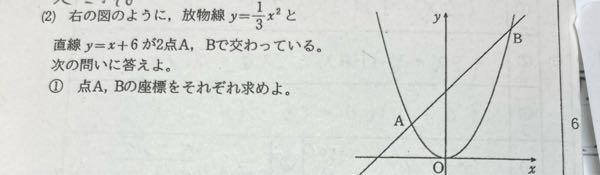 (2) 右の図のように，放物線 y=1/3x² と
直線 y=x+6 が2点A，Bで交わっている。
次の問いに答えよ。
① 点A，Bの座標をそれぞれ求めよ。
y
B
A
O
x
6